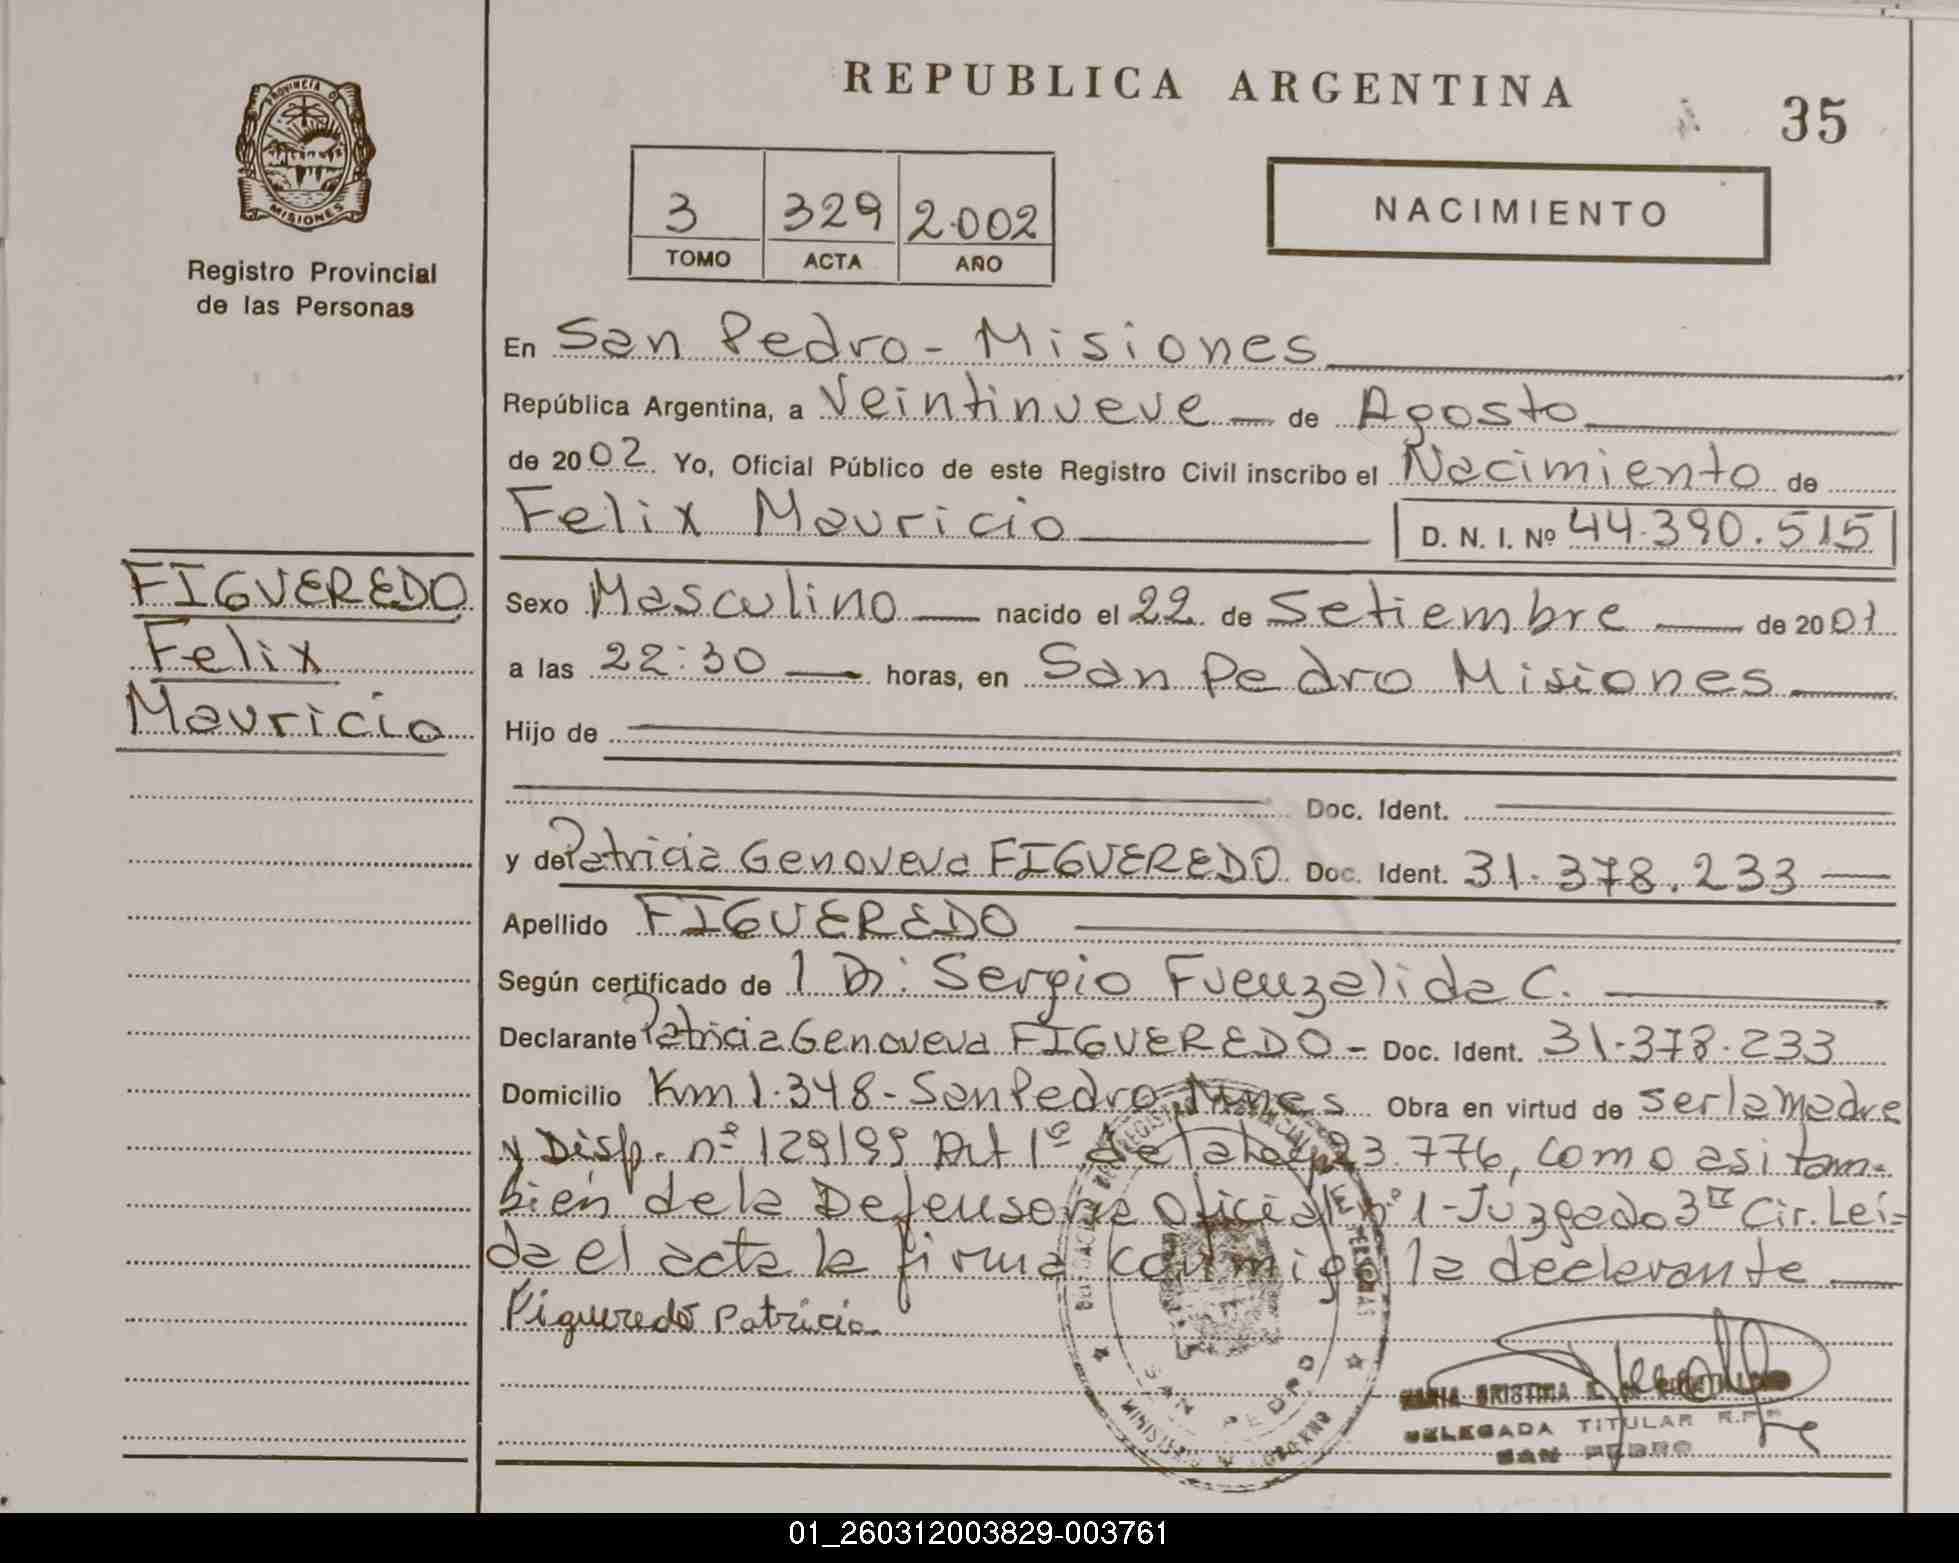 PROVINCIA D
MISIONES
Registro Provincial
de las Personas
REPUBLICA ARGENTINA
35
3 329 2.002
TOMO ACTA AÑO
NACIMIENTO
En San Pedro - Misiones
República Argentina, a Veintinueve de Agosto
de 2002. Yo, Oficial Público de este Registro Civil inscribo el Nacimiento de
Felix Mauricio D. N. I. Nº 44.390.515
FIGUEREDO
Felix
Mauricio
Sexo Masculino nacido el 22 de Setiembre de 2001
a las 22:30 horas, en San Pedro Misiones
Hijo de
Doc. Ident.
y de Patricia Genoveva FIGUEREDO Doc. Ident. 31.378.233
Apellido FIGUEREDO
Según certificado de 1 Dr: Sergio Fuenzalida C.
Declarante Patricia Genoveva FIGUEREDO - Doc. Ident. 31.378.233
Domicilio Km 1.348 - San Pedro Mnes Obra en virtud de ser la madre
y Disp. nº 129/99 Art 1º de la ley 23.776, como asi tam-
bién de la Defensoria Oficial nº 1 - Juzgado 3ª Cir. Leí-
da el acta la firma conmigo la declarante
Figueredo Patricia
SAN PEDRO
MARIA CRISTINA
DELEGADA TITULAR R.P.P.
SAN PEDRO
01_260312003829-003761